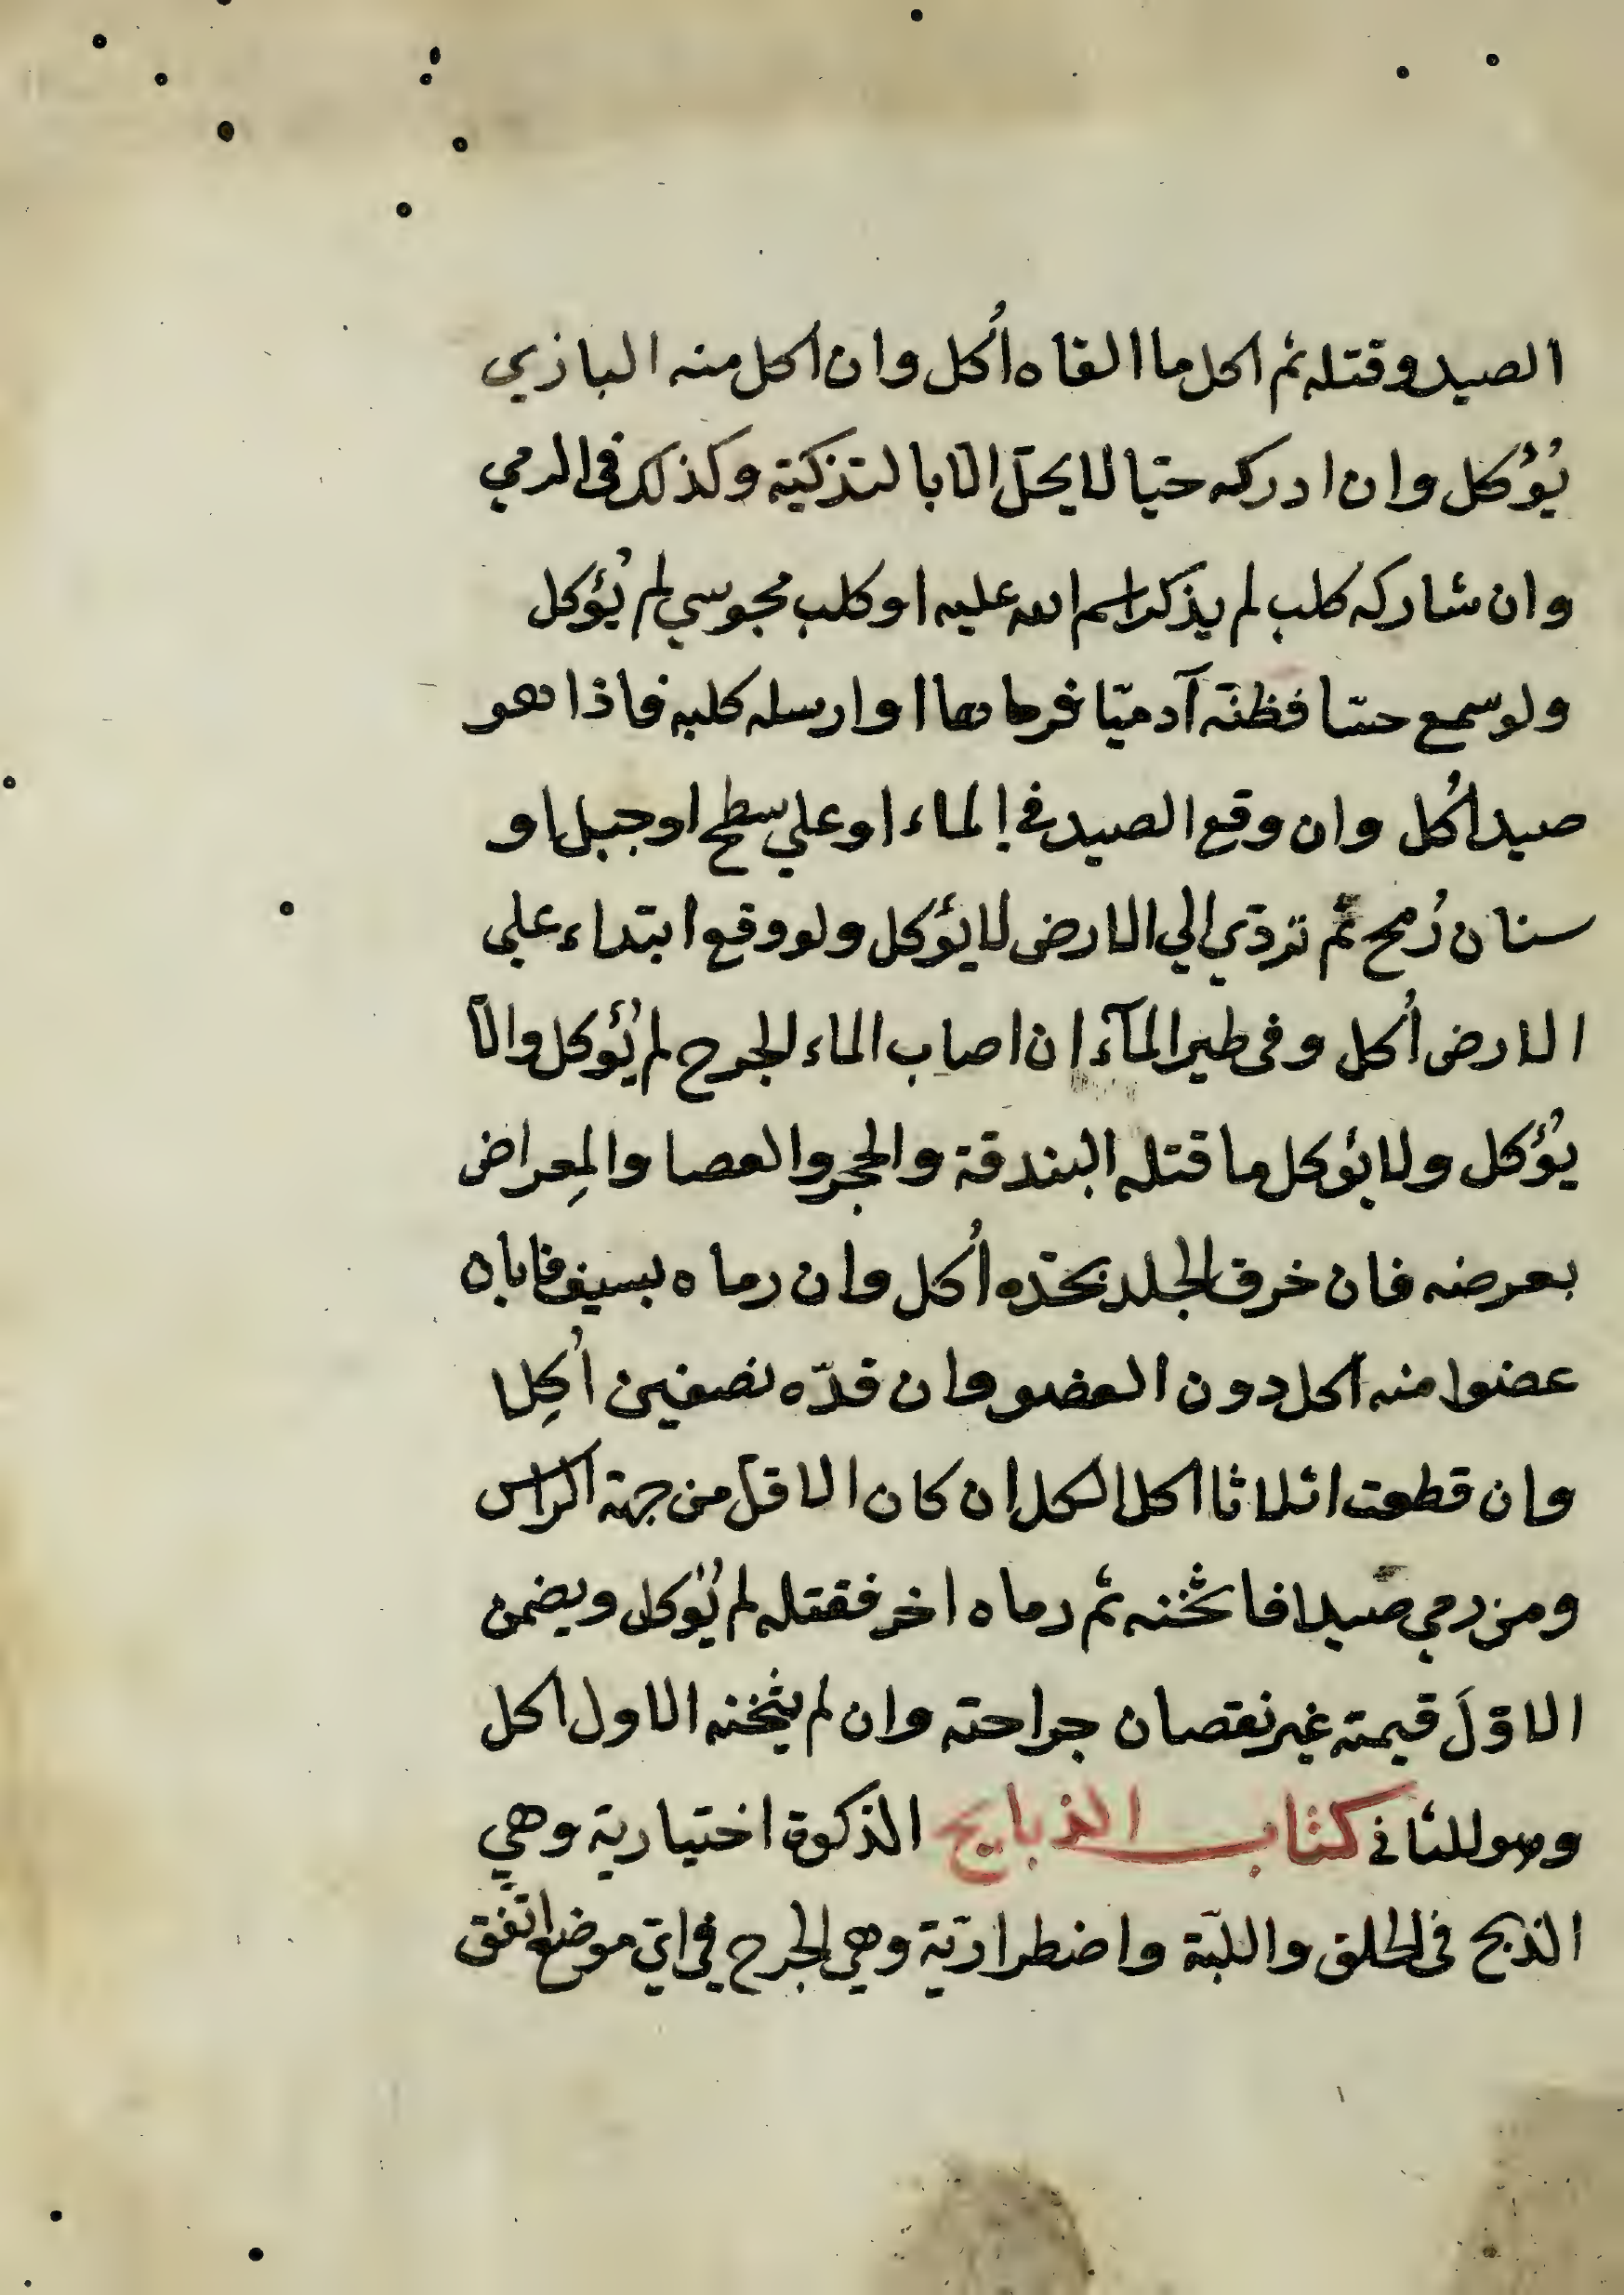 الصيد وقتله ثم اكل ما القاه اُكل وان اكل منه البازي
يُؤكل وان ادركه حيّا لا يحلّ الّا بالتذكية وكذلك في الرمي
وان شاركه كلب لم يذكر اسم الله عليه او كلب مجوسي لم يُؤكل
ولو سمع حسّا فظنّه آدميّا فرماها او ارسله كلبه فاذا هو
صيد اُكل وان وقع الصيد في الماء او علي سطح او جبل او
سنان رُمح ثم تردّي الي الارض لا يؤكل ولو وقع ابتداء علي
الارض اُكل وفي طير المآء ان اصاب الماء الجرح لم يُؤكل والّا
يُؤكل ولا يؤكل ما قتله البندقة والحجر والعصا والمِعراض
بعرضه فان خرق الجلد بحدّه اُكل وان رماه بسيف فابان
عضوا منه اكل دون العضو وان قدّه نصفين اُكِلا
وان قطعت اثلاثا اكل الكل ان كان الاقلّ من جهة الراس
ومن رمي صيدا فاثخنه ثم رماه اخر فقتله لم يُؤكل ويضمن
الاوّلَ قيمته غير نقصان جراحته وان لم يثخنه الاول اكل
وهو للثاني كتاب الذبايح الذكوة اختيارية وهي
الذبح في الحلق واللبّة واضطراريّة وهي الجرح في ايّ موضع اتّفق